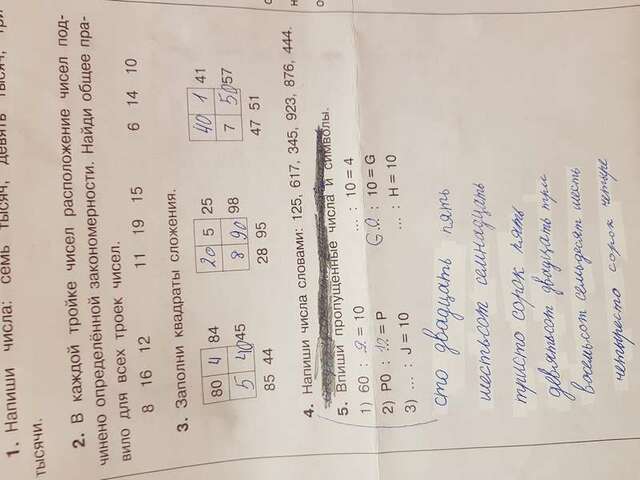 1. Напиши числа: семь тысяч, девять тысяч, три
тысячи.
2. В каждой тройке чисел расположение чисел под-
чинено определённой закономерности. Найди общее пра-
вило для всех троек чисел.
8 16 12 11 19 15 6 14 10
3. Заполни квадраты сложения.
80 4 84 20 5 25 40 1 41
5 40 45 8 90 98 7 50 57
85 44 28 95 47 51
4. Напиши числа словами: 125, 617, 345, 923, 876, 444.
5. Впиши пропущенные числа и символы.
1) 60 : = 10 ... : 10 = 4
2) P0 : = P G.0 : 10 = G
3) ... : J = 10 ... : H = 10
сто двадцать пять
шестьсот семнадцать
тристо сорок пять
девятьсот двадцать три
восемьсот семьдесят шесть
четыресто сорок четыре